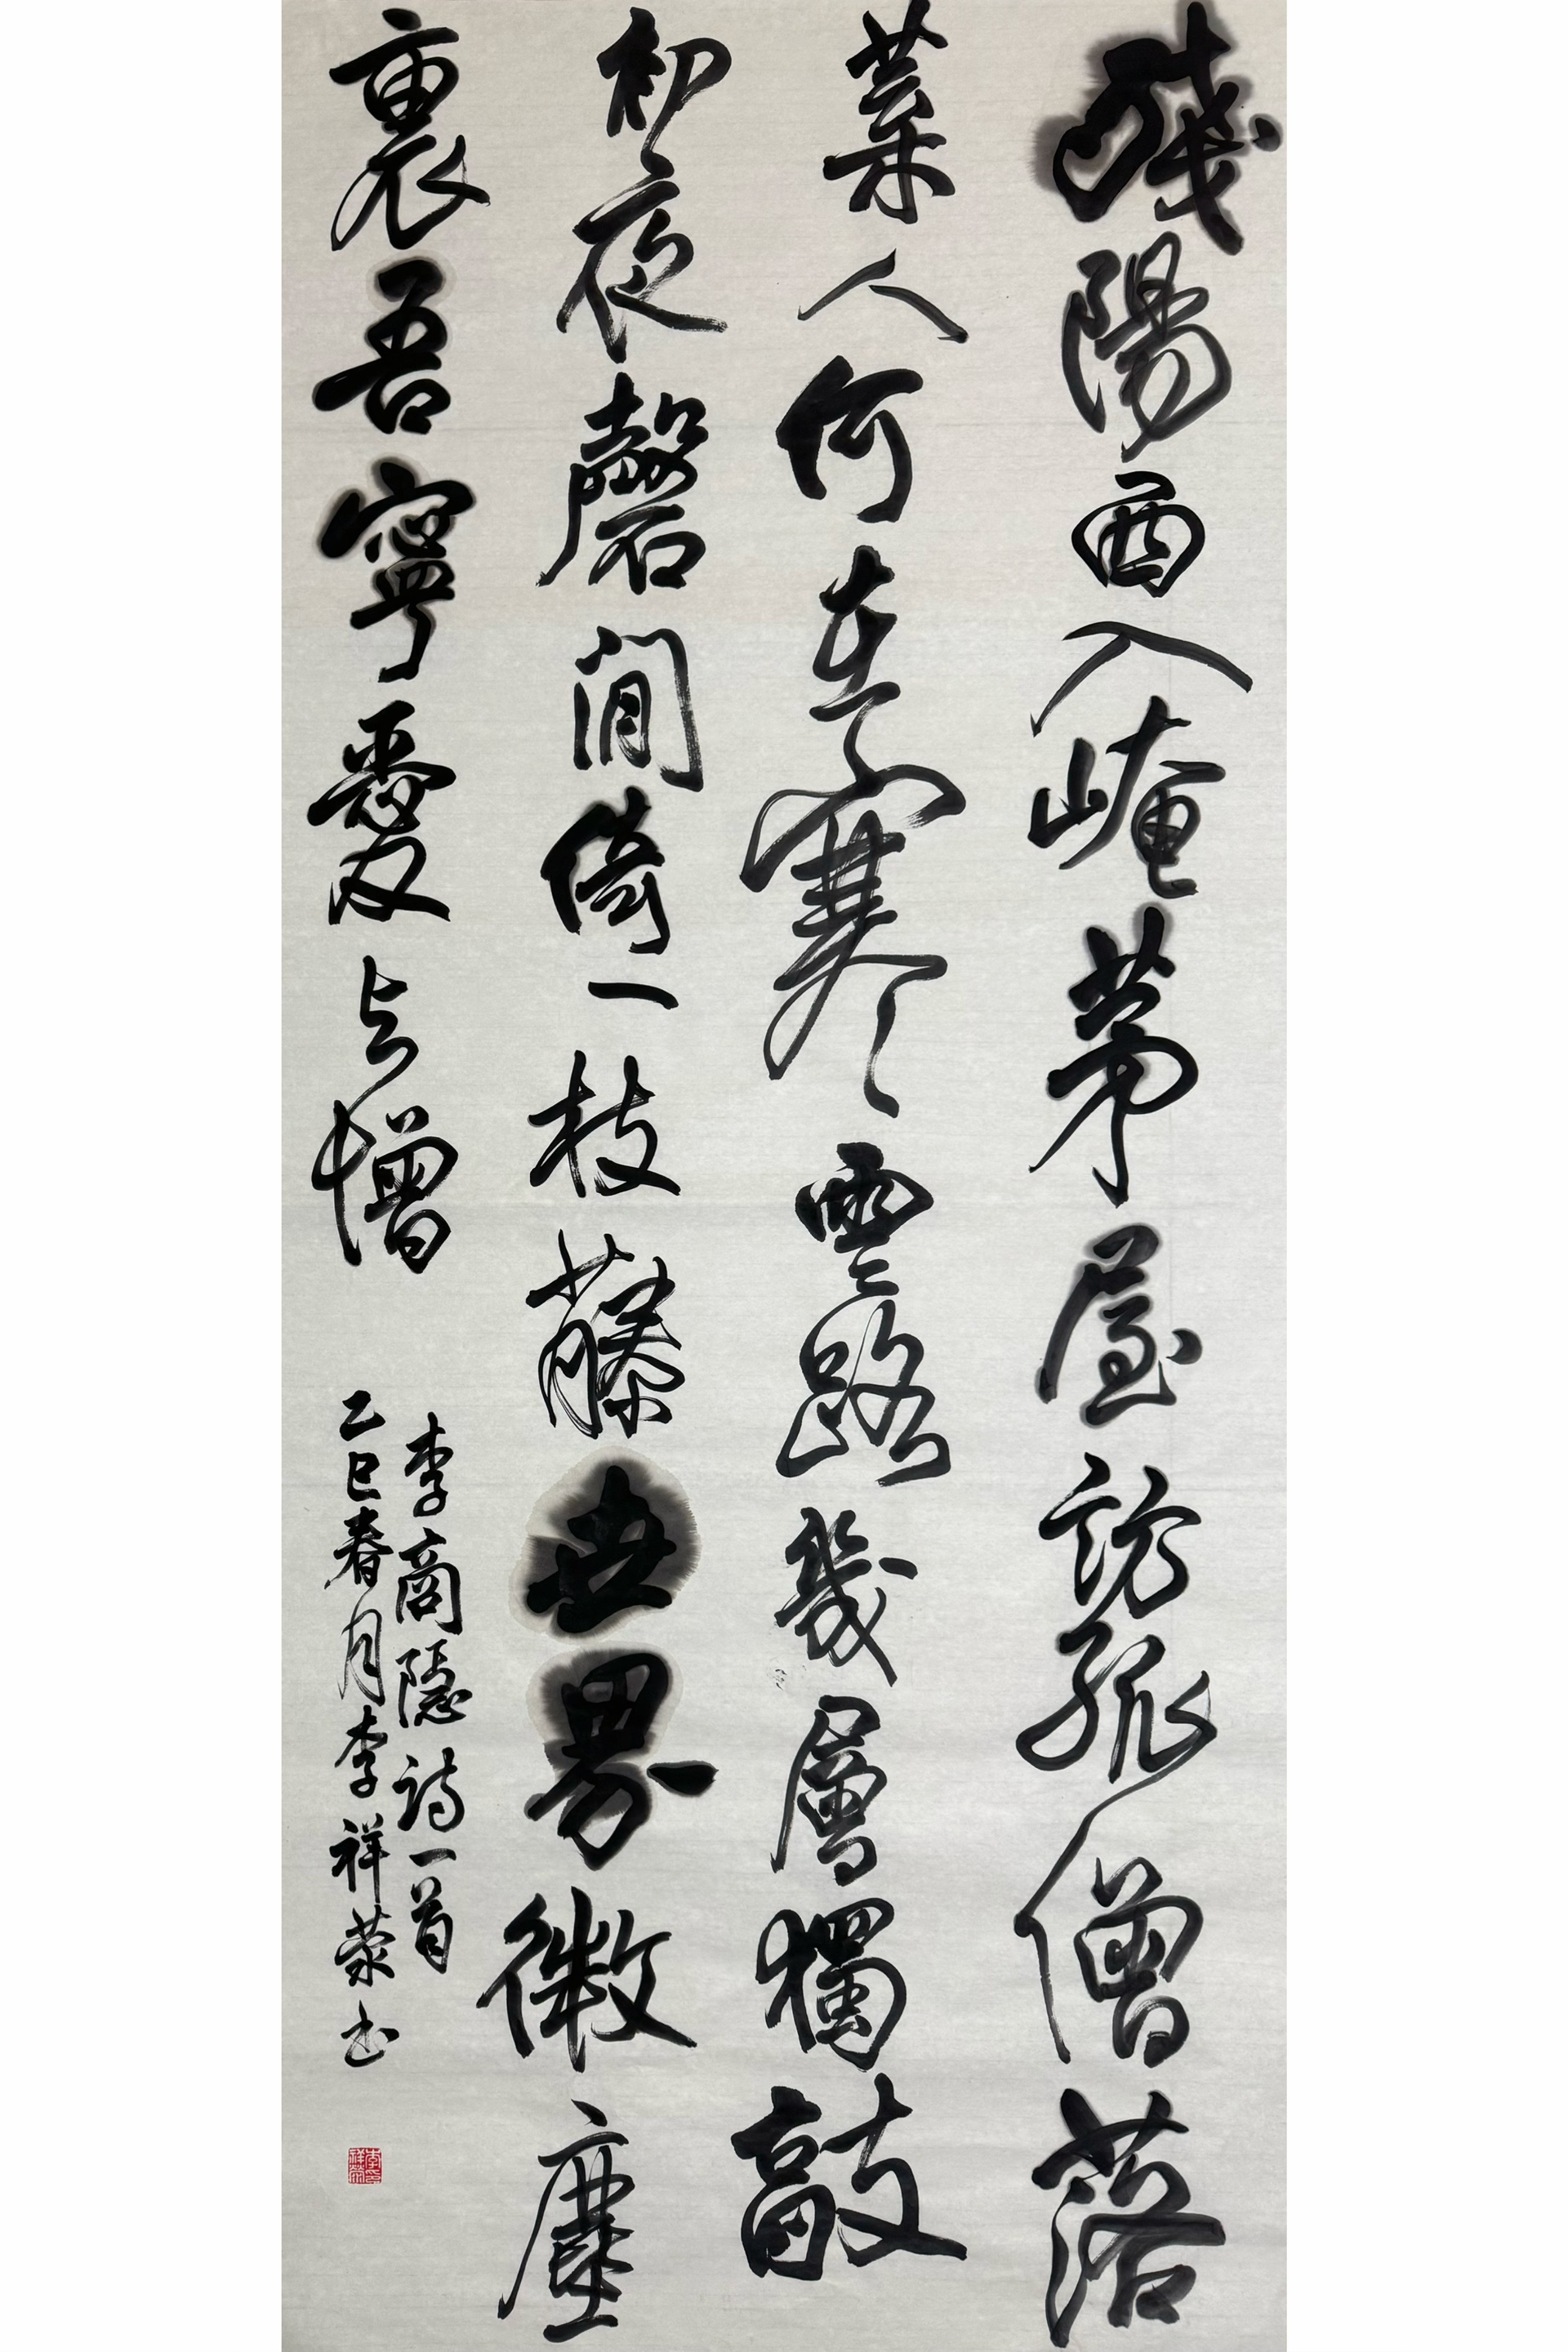 殘陽西入崦茅屋訪孤僧落
葉人何在寒雲路幾層獨敲
初夜磬閒倚一枝藤世界微塵
裏吾寧愛与憎
李商隱詩一首
乙巳春月李祥荣书